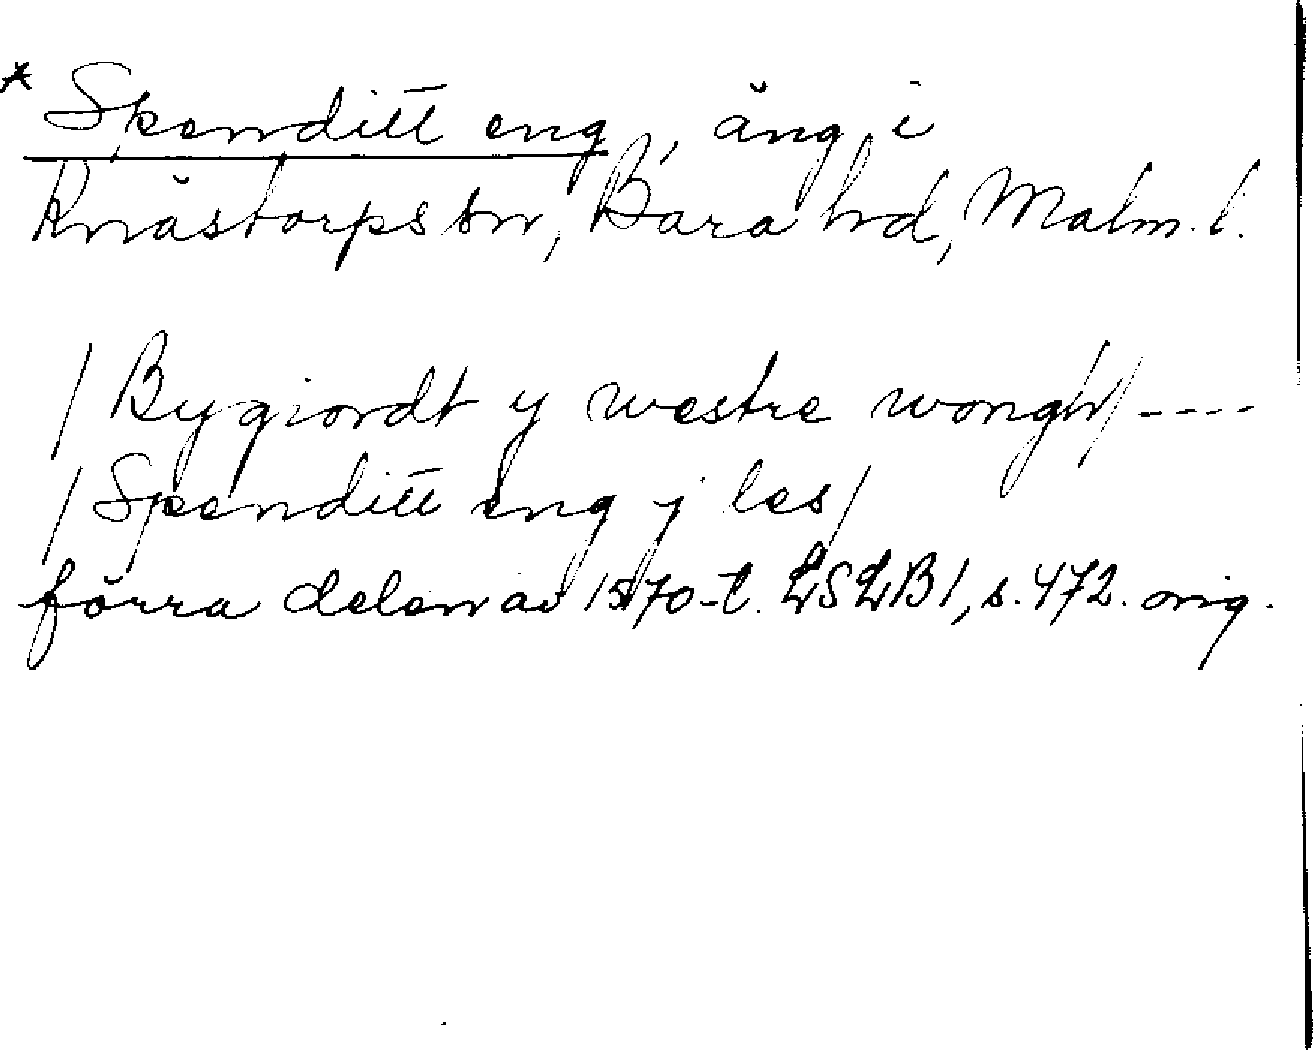 * Spenditt eng, äng i
Knästorps sn, Bara hd, Malm. l.
/ Bygiordt y westre wongh / ----
/ Spenditt eng y les /
förra delen av 1570-t. LSLB 1, s. 472. orig.